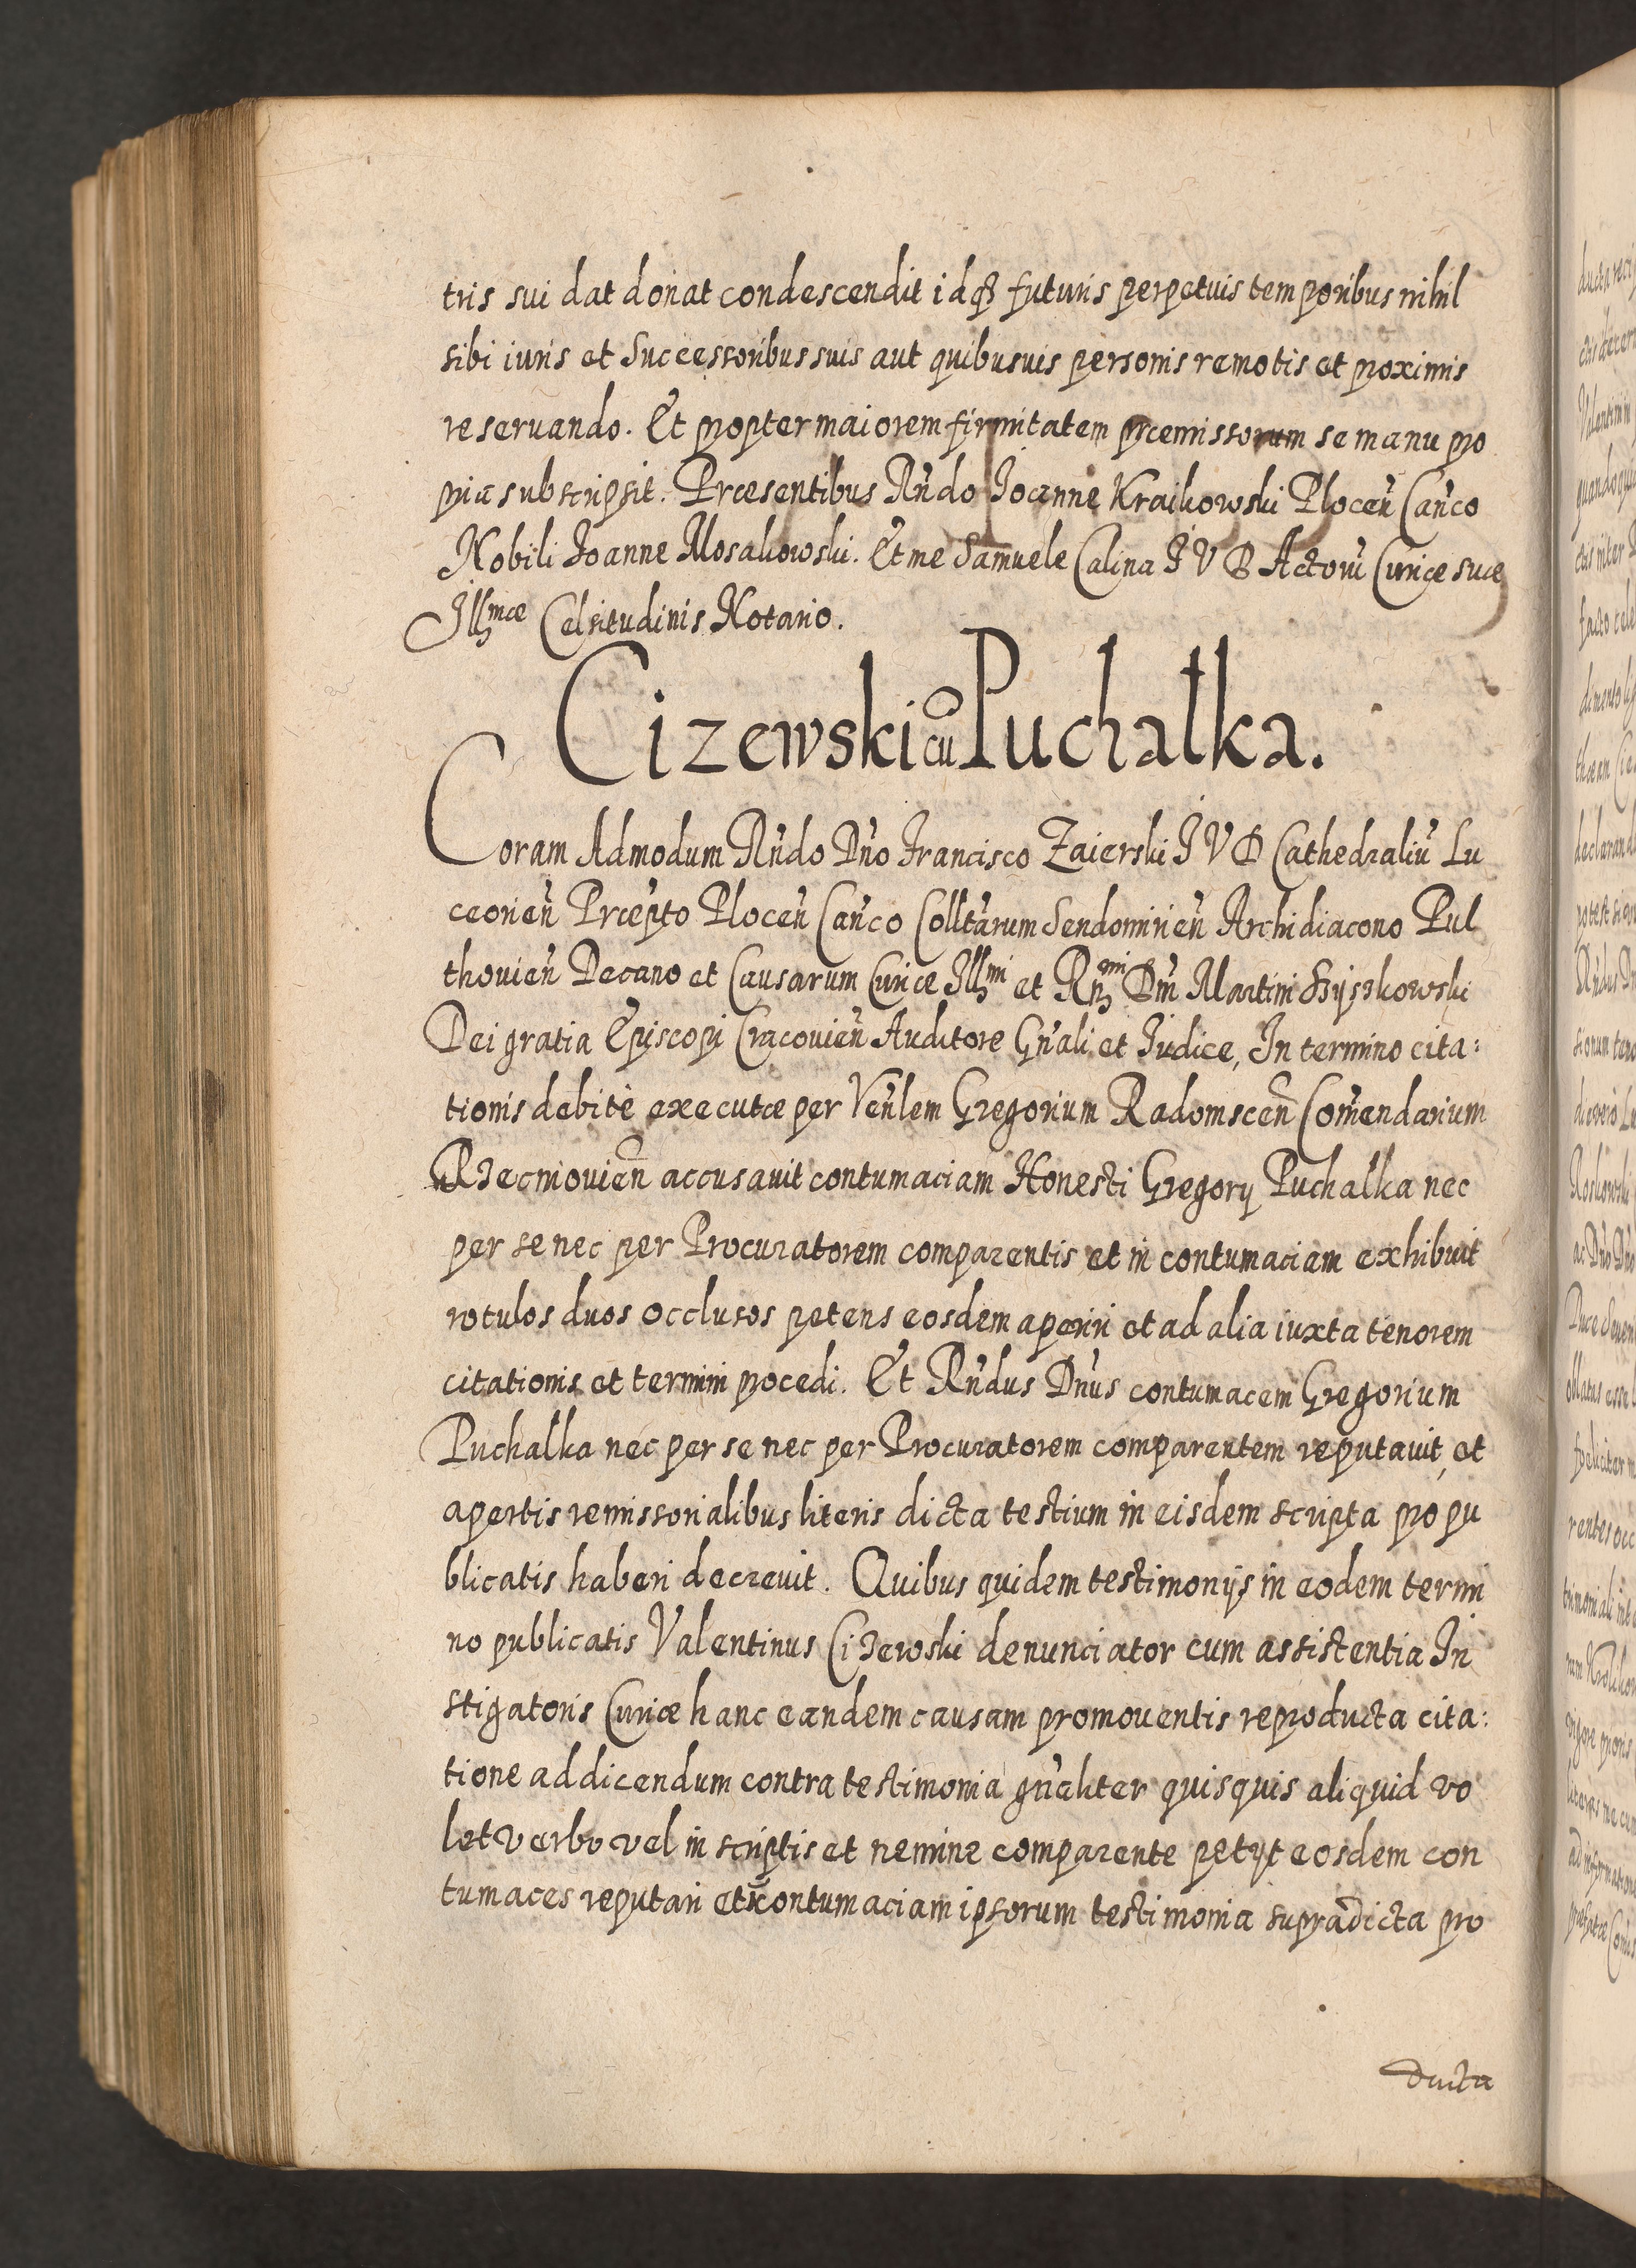 tris sui dat donat condescendit idq₃ futuris perpetuis temporibus nihil
sibi iuris et Successoribus suis aut quibusuis personis remotis et proximis
reseruando. Et propter maiorem firmitatem præmissorum se manu pro
pria subscripsit. Præsentibus Rndo Joanne Kraikowski Plocen̄ Can̄co
Nobili Joanne Mosakowski. Et me Samuele Calina J V D Actorū Curiæ suæ
Jllꝫmæ Celsitudinis Notario.
Cizewski cū Puchałka.
Coram Admodum Rn̄do Dn̄o Francisco Zaierski J V D Cathedraliū Lu
ceorien̄ Præp̄to Plocen̄ Can̄co Colltārum Sendomirien̄ Archidiacono Pul
thouien̄ Decano et Causarum Curiæ Jllꝫmi et Rnꝫmi Dn̄i Martini Szyszkowski
Dei gratia Episcopi Cracouien̄ Auditore Gn̄ali et Judice, Jn termino cita:
tionis debitè executæ per Ven̄lem Gregorium Radomscen̄ Com̄endarium
Rzecniouien̄ accusauit contumaciam Honesti Gregorij Puchalka nec
per se nec per Procuratorem comparentis et in contumaciam exhibuit
rotulos duos occlusos petens eosdem aperiri et ad alia iuxta tenorem
citationis et termini procedi. Et Rn̄dus Dn̄us contumacem Gregorium
Puchalka nec per se nec per Procuratorem comparentem reputauit, et
apertis remissorialibus literis dicta testium in eisdem scripta pro pu
blicatis haberi decreuit. Quibus quidem testimonijs in eodem termi
no publicatis Valentinus Cizewski denunciator cum assistentia Jn
stigatoris Curiæ hanc eandem causam promouentis reproducta cita:
tione ad dicendum contra testimonia gn̄aliter quisquis aliquid vo
let verbo vel in scriptis et nemine comparente petyt eosdem con
tumaces reputari et in contumaciam ipsorum testimonia supradicta pro
ducta